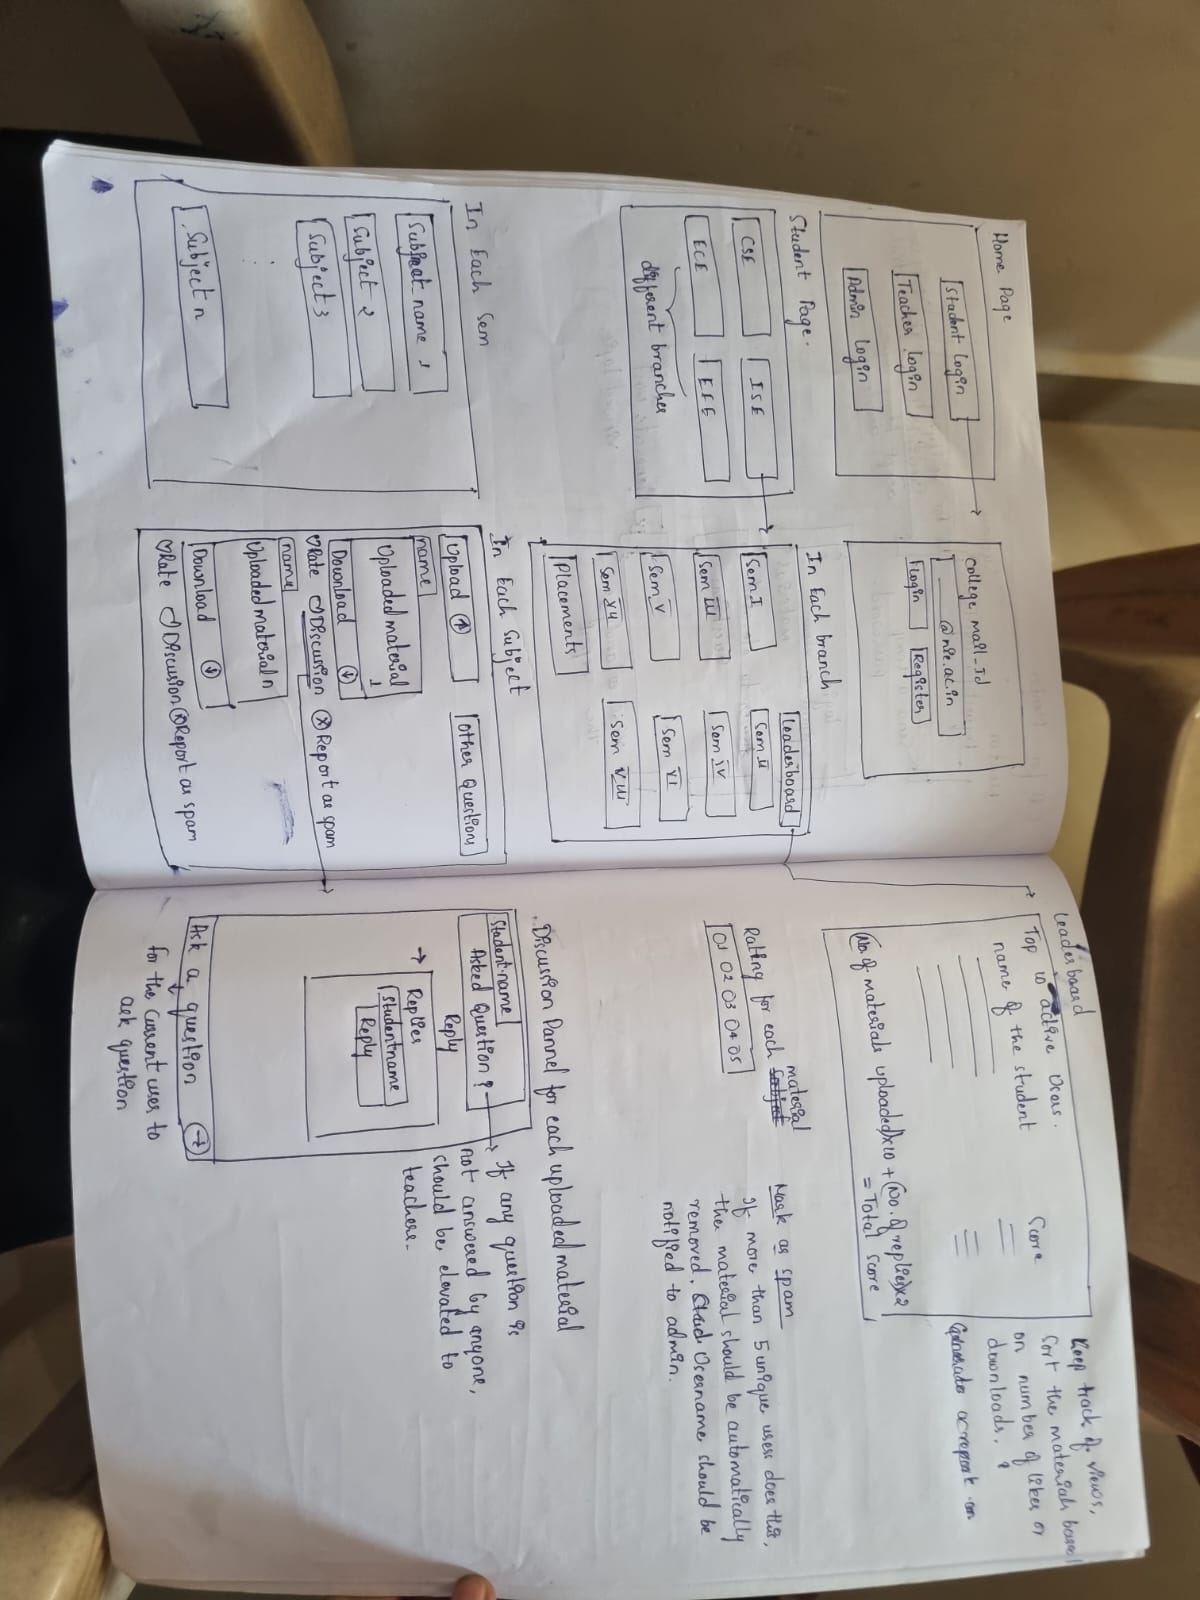 Home Page
Student login
Teacher login
Admin login
college mail-Id
@nie.ac.in
Login
Register
Student Page.
CSE
ISE
ECE
EEE
different branches
In Each branch
Leaderboard
Sem I
Sem II
Sem III
Sem IV
Sem V
Sem VI
Sem VII
Sem VIII
Placements
In Each Sem
Subject name 1
Subject 2
Subject 3
Subject n
In Each Subject
Upload
Other Questions
name
Uploaded material
1
Download
Rate Discussion Report as spam
name
Uploaded material n
Download
Rate Discussion Report as spam
Leaderboard
Top 10 active Users.
name of the student
Score
(No. of materials uploaded)x10 + (No. of replies)x2
= Total Score
Keep track of views,
Sort the materials based
on number of likes or
downloads.
Rating for each material
01 02 03 04 05
Mark as spam
If more than 5 unique users does this,
the material should be automatically
removed. Username should be
notified to admin.
Discussion Pannel for each uploaded material
Student name
Asked Question?
Reply
Replies
Studentname
Reply
Ask a question
for the current user to
ask question
If any question is
not answered by anyone,
should be elevated to
teachers.